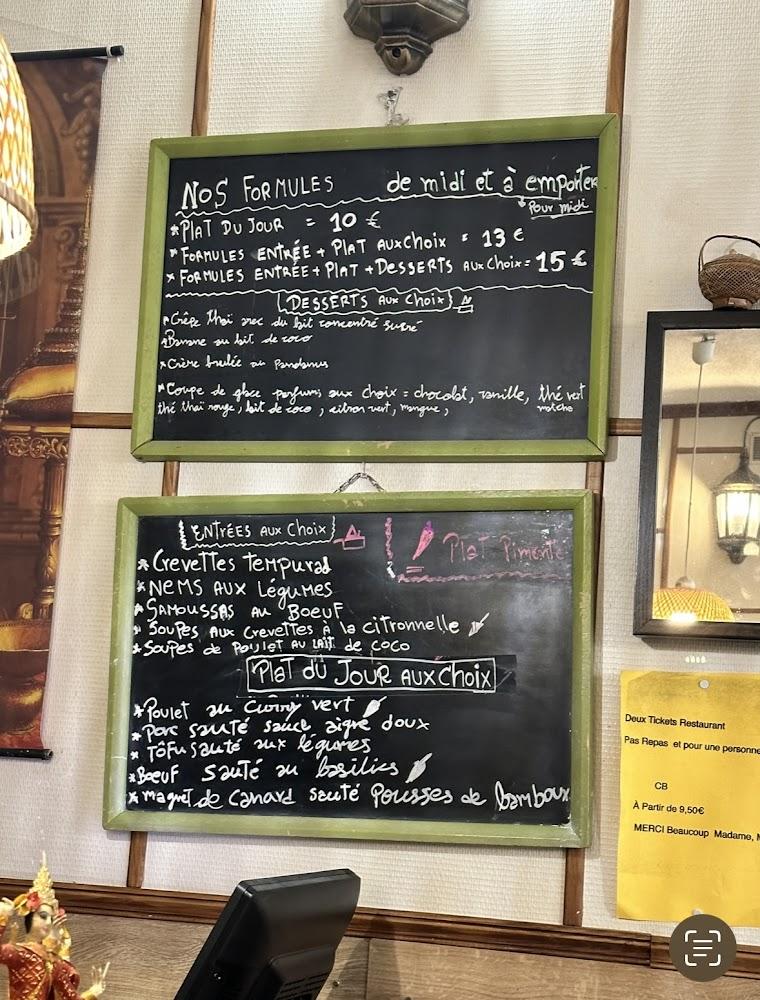 NOS FORMULES de midi et à emporter
pour midi
* PLAT DU JOUR = 10 €
* FORMULES ENTRÉE + PLAT AUX CHOIX = 13 €
* FORMULES ENTRÉE + PLAT + DESSERTS AUX CHOIX = 15 €
DESSERTS AUX CHOIX
* Crêpe thaï avec du lait concentré sucré
* Banane au lait de coco
* Crème brulée au Pandanus
* Coupe de glace parfums aux choix = chocolat, vanille, thé vert
matcha
thé thaï rouge, lait de coco, citron vert, mangue,
ENTRÉES AUX CHOIX
Plat Pimenté
* Crevettes Tempura
* NEMS AUX Légumes
* SAMOUSSAS AU BOEUF
* SOUPES AUX CREVETTES à la citronnelle
* SOUPES DE POULET AU LAIT de coco
Plat du JOUR AUX Choix
* Poulet au Curry vert
* Porc sauté sauce aigre doux
* Tôfu sauté aux légumes
* Boeuf sauté au basilics
* magret de canard sauté Pousses de bambou
Deux Tickets Restaurant
Pas Repas et pour une personne
CB
À Partir de 9,50€
MERCI Beaucoup Madame,